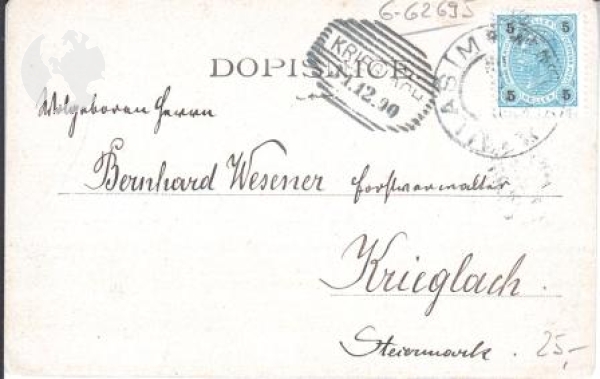 6-62695
KRIEGLACH
.12.00
ASIM
5 5
HELLER
5 5
DOPISNICE.
Wolgeboren Herrn
Bernhard Wesener Forstverwalter
Krieglach.
Steiermark.
25,-